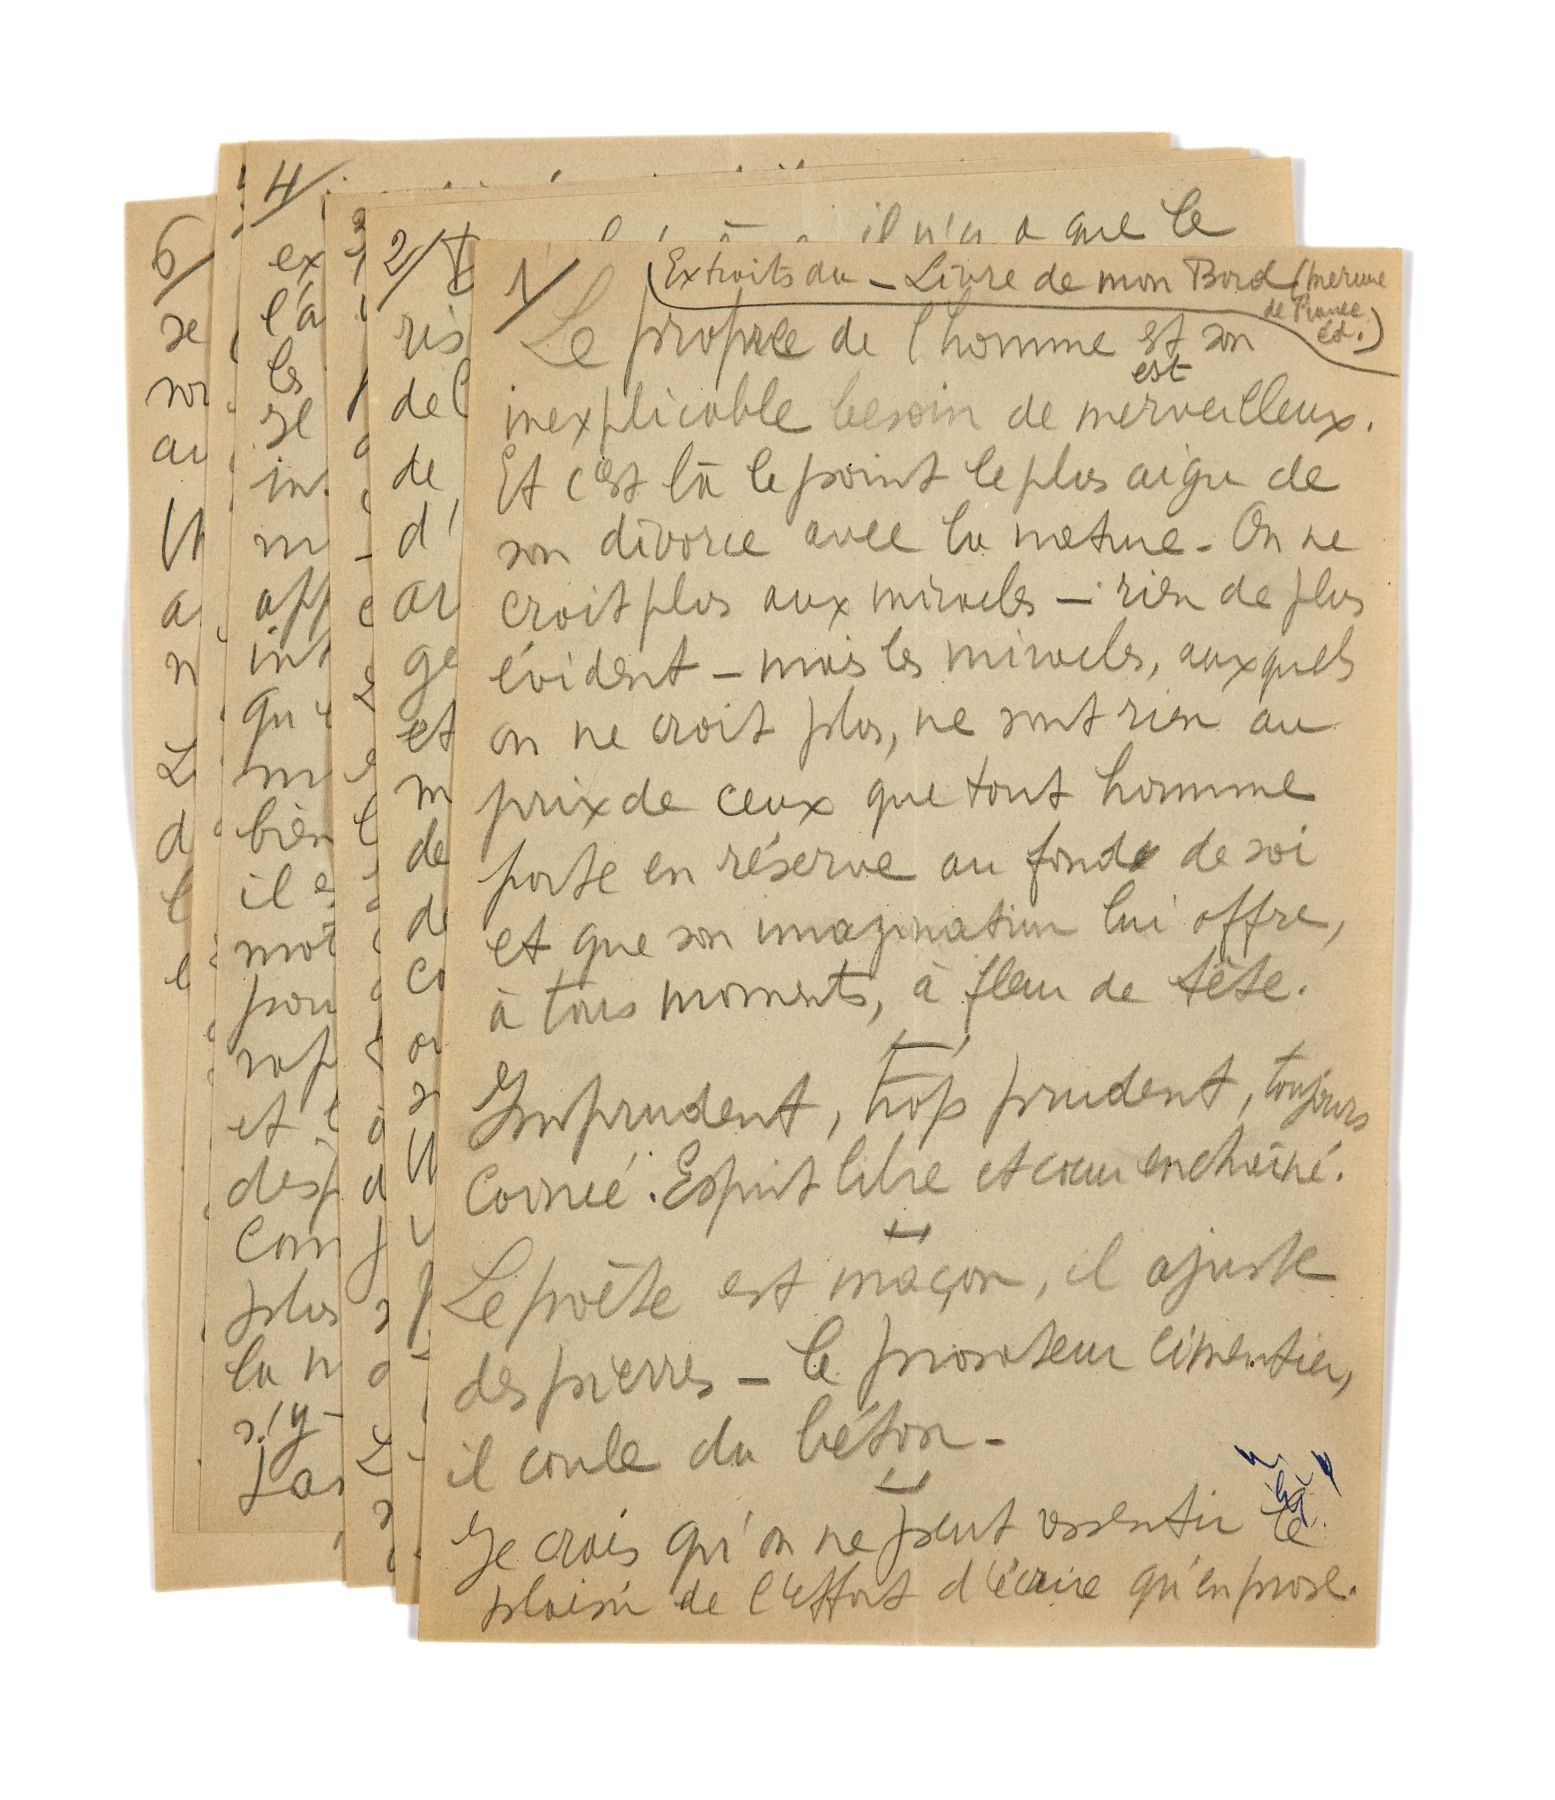 1/
Extraits du - Livre de mon Bord (Mercure
de France
éd.)
Le propre de l'homme est son
est
inexplicable besoin de merveilleux.
Et c'est là le point le plus aigu de
son divorce avec la nature - On ne
croit plus aux miracles - rien de plus
évident - mais les miracles, auxquels
on ne croit plus, ne sont rien au
prix de ceux que tout homme
porte en réserve au fond de soi
et que son imagination lui offre,
à tous moments, à fleur de tête.
Imprudent, trop prudent, toujours
coincé. Esprit libre et cœur enchaîné.
Le poète est maçon, il ajuste
des pierres - le prosateur cimentier,
il coule du béton -
Je crois qu'on ne peut ressentir le
plaisir de l'effort d'écrire qu'en prose.
2/
il n'y a que le
ris
de l
de
d'
ar
ge
et
m
de
de
co
or
3/
4/
ex
l'a
les
se
in
m
app
int
qu'
m
bien
il e
mot
pou
rap
et l
desp
Com
plus
la n
s'y
5/
se
son
au
Un
a
n
L
d
l
e